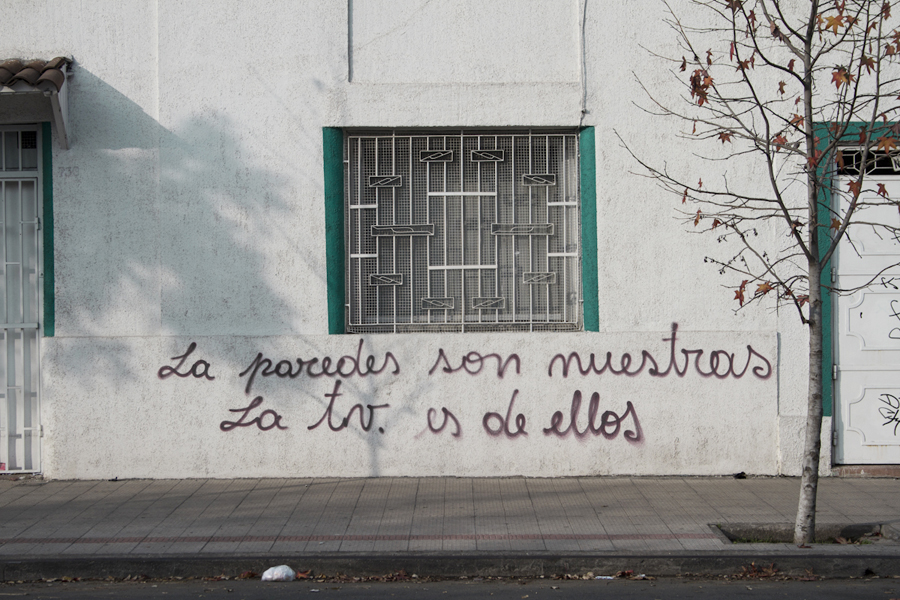 La paredes son nuestras
La tv. es de ellos